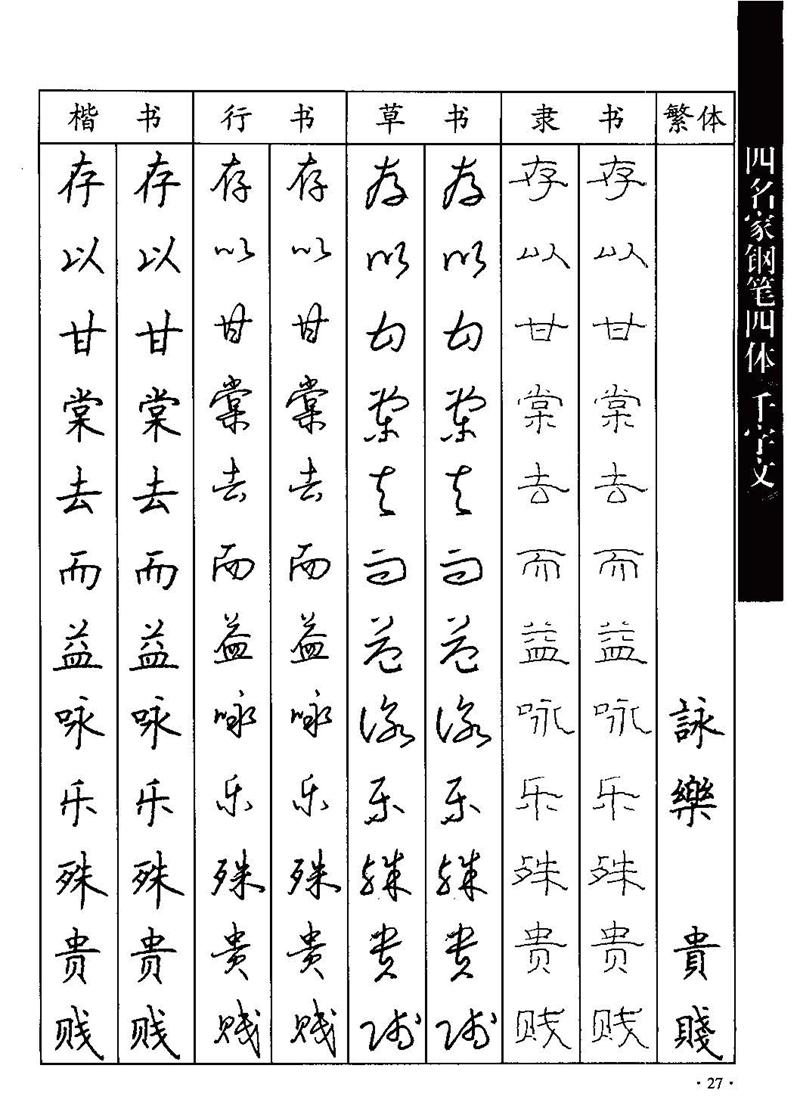 楷书 行书 草书 隶书 繁体
存 存 存 存 存 存 存 存
以 以 以 以 以 以 以 以
甘 甘 甘 甘 甘 甘 甘 甘
棠 棠 棠 棠 棠 棠 棠 棠
去 去 去 去 去 去 去 去
而 而 而 而 而 而 而 而
益 益 益 益 益 益 益 益
咏 咏 咏 咏 咏 咏 咏 咏 詠
乐 乐 乐 乐 乐 乐 乐 乐 樂
殊 殊 殊 殊 殊 殊 殊 殊
贵 贵 贵 贵 贵 贵 贵 贵 貴
贱 贱 贱 贱 贱 贱 贱 贱 賤
四名家钢笔四体 千字文
·27·